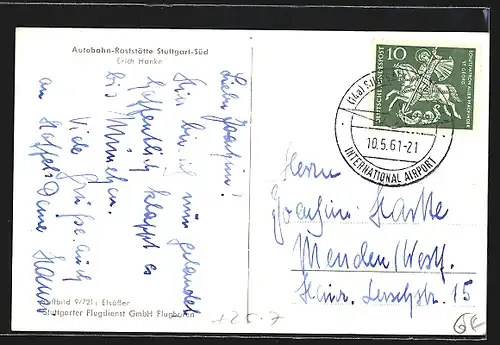 Autobahn-Raststätte Stuttgart-Süd
Erich Hanke
Lieber Joachim!
Hier bin ich nun gelandet
hoffentlich klappt es
bis München.
Viele Grüße auch
an
Deine
Luftbild 9/721: Elsäßer
Stuttgarter Flugdienst GmbH Flughafen
10
DEUTSCHE BUNDESPOST
ST. GEORG
(14a)
10.5.61-21
INTERNATIONAL AIRPORT
Herrn
Joachim Starke
Menden/Westf.
Heinr. Lerschstr. 15